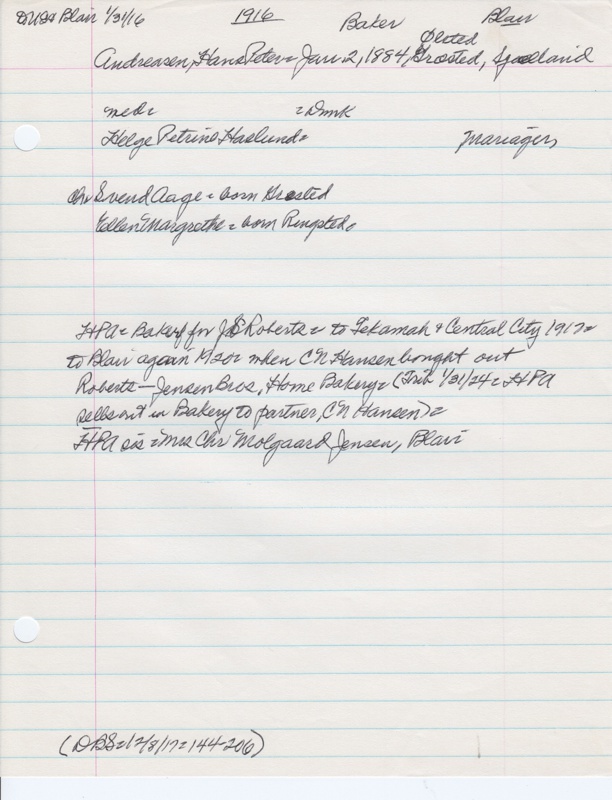 Blair 1/31/16 1916 Baker Blair
Ølsted
Andreasen, Hans Peter = Jan. 2, 1884, Grosted, Sjaelland
med = = Dmk
Helge Petrine Haslund = Mariager,
ch = Svend Aage = born Grosted
Ellen Margrethe = born Ringsted.
HPA = Baker for JS Roberts = to Tekamah & Central City 1917 =
to Blair again = when CN Hansen bought out
Roberts — Jensen Bros, Home Bakery = (Trib 1/31/24 = HPA
sells out in Bakery to partner, CN Hansen) =
HPA sis = Mrs Chr Molgaard Jensen, Blair
(DBS = 12/8/17 = 144-206)